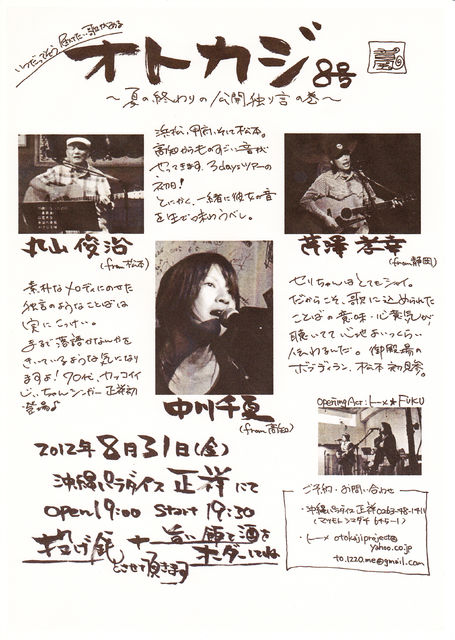 いつだってそう 届けたい歌がある
オトカジ 8号
～夏の終わりの公開独り言の巻～
浜松、甲府、そして松本。
高知からものすごい音が
やってきます。3daysツアーの
初日!
とにかく、一緒に彼女の音
を生で味わうべし。
丸山俊治
(from 松本)
素朴なメロディにのせた
独言のようなことばは
実にこっけい。
まるで落語かなんかを
きいているような気になり
ますよ!70代、カッコイイ
じいちゃんシンガー正祥初
登場♪
中川千夏
(from 高知)
芹澤孝幸
(from 静岡)
セリちゃんはとてもシャイ。
だからこそ、歌に込められた
ことばの意味・心意気が
聴いてて心地よいっくらい
伝わるんだ。御殿場の
ボブディラン。松本初見参。
Opening Act: トーメ★FUKU
2012年8月31日(金)
沖縄パラダイス 正祥にて
OPEN 19:00 Start 19:30
投げ銭 + 旨い飯と酒を
オーダーしてね
とさせて頂きます
ご予約・お問い合わせ
・沖縄パラダイス正祥 0263-48-1411
(マツモトシシマダチ 645-1)
・トーメ otokajiproject@
yahoo.co.jp
to.1220.me@gmail.com